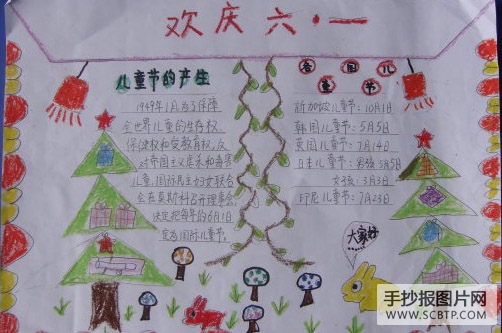 欢庆六·一
儿童节的产生
1949年1月为了保障
全世界儿童的生存权
保健权和受教育权,反
对帝国主义虐杀和毒害
儿童,国际民主妇女联合
会在莫斯科召开理事会,
决定把每年的6月1日
定为国际儿童节。
各国儿
童节
新加坡儿童节:10月1日
韩国儿童节:5月5日
英国儿童节:7月14日
日本儿童节:男孩5月5日
女孩:3月3日
印尼儿童节:7月23日
大家好
手抄报图片网
WWW.SCBTP.COM